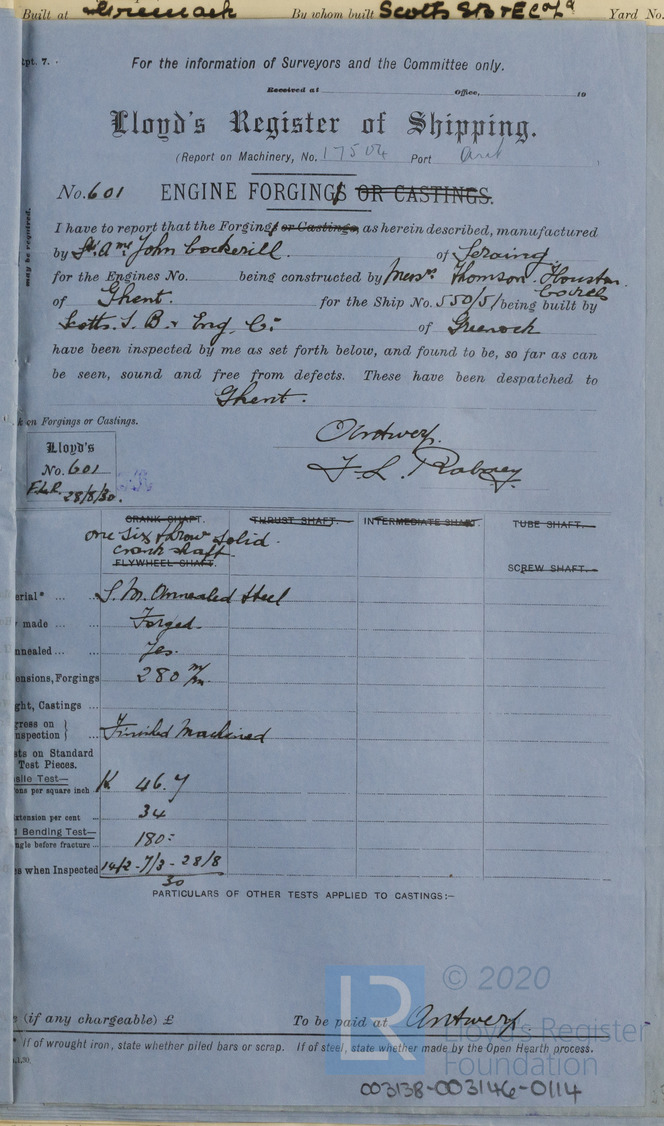 Built at Greenock By whom built Scotts SB & E Co Ld Yard No.
Rpt. 7.
For the information of Surveyors and the Committee only.
Received at Office, 19
Lloyd's Register of Shipping.
(Report on Machinery, No. 17504 Port
No. 601 ENGINE FORGINGS OR CASTINGS.
may be required.
I have to report that the Forgings or Castings, as herein described, manufactured
by Sté Ame John Cockerill. of Seraing
for the Engines No. being constructed by Messrs Thomson Houston
of Ghent. for the Ship No. 550/51 being built by
Scotts. S. B. & Eng. Co. of Greenock
have been inspected by me as set forth below, and found to be, so far as can
be seen, sound and free from defects. These have been despatched to
Ghent.
k on Forgings or Castings.
Antwerp.
Lloyd's
No. 601
28/8/30.
F. L.
CRANK SHAFT. THRUST SHAFT. INTERMEDIATE SHAFT. TUBE SHAFT.
one six throw solid
crank shaft
FLYWHEEL SHAFT. SCREW SHAFT.
erial* ... S. M. Annealed Steel
made ... Forged.
nnealed ... Yes.
ensions, Forgings 280 m/m.
ght, Castings ...
gress on
nspection } Finished Machined
sts on Standard
Test Pieces.
sile Test—
ons per square inch K. 46.7
xtension per cent 34
Bending Test—
ngle before fracture ... 180°
s when Inspected 14/2 - 7/3 - 28/8
30
PARTICULARS OF OTHER TESTS APPLIED TO CASTINGS:—
(if any chargeable) £ To be paid at Antwerp
* If of wrought iron, state whether piled bars or scrap. If of steel, state whether made by the Open Hearth process.
LR
© 2020
Lloyd's Register
Foundation
003138-003146-0114